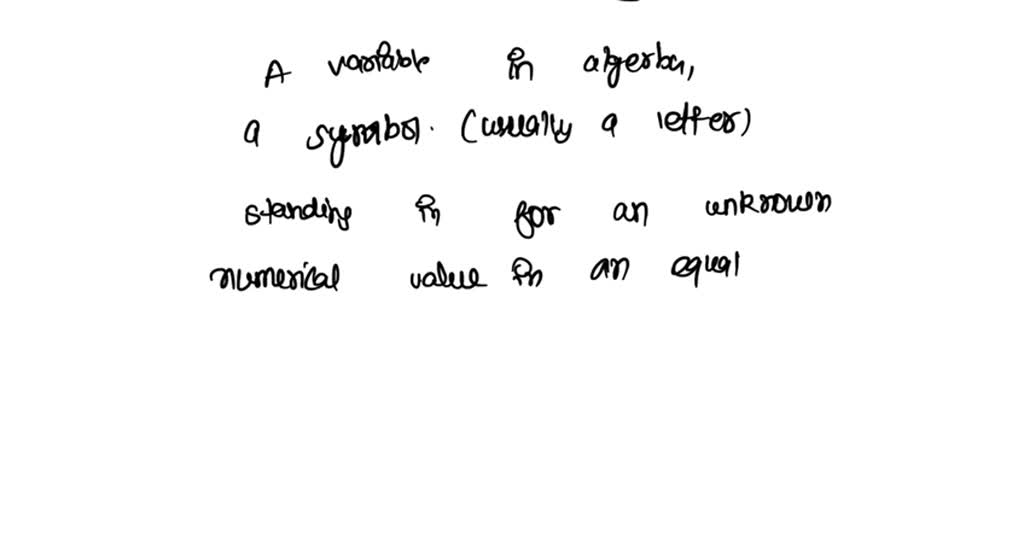 A variable in algerba,
a symbol. (usually a letter)
standing in for an unknown
numerical value in an equal